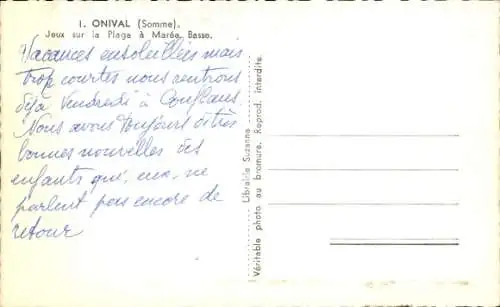 1. ONIVAL (Somme).
Jeux sur la Plage à Marée Basse.
Vacances ensoleillées mais
trop courtes nous rentrons
déjà Vendredi à Conflans.
Nous avons toujours de très
bonnes nouvelles des
enfants qui, eux, ne
parlent pas encore de
retour
Librairie Suzanne
Véritable photo au bromure. Reprod. interdite.